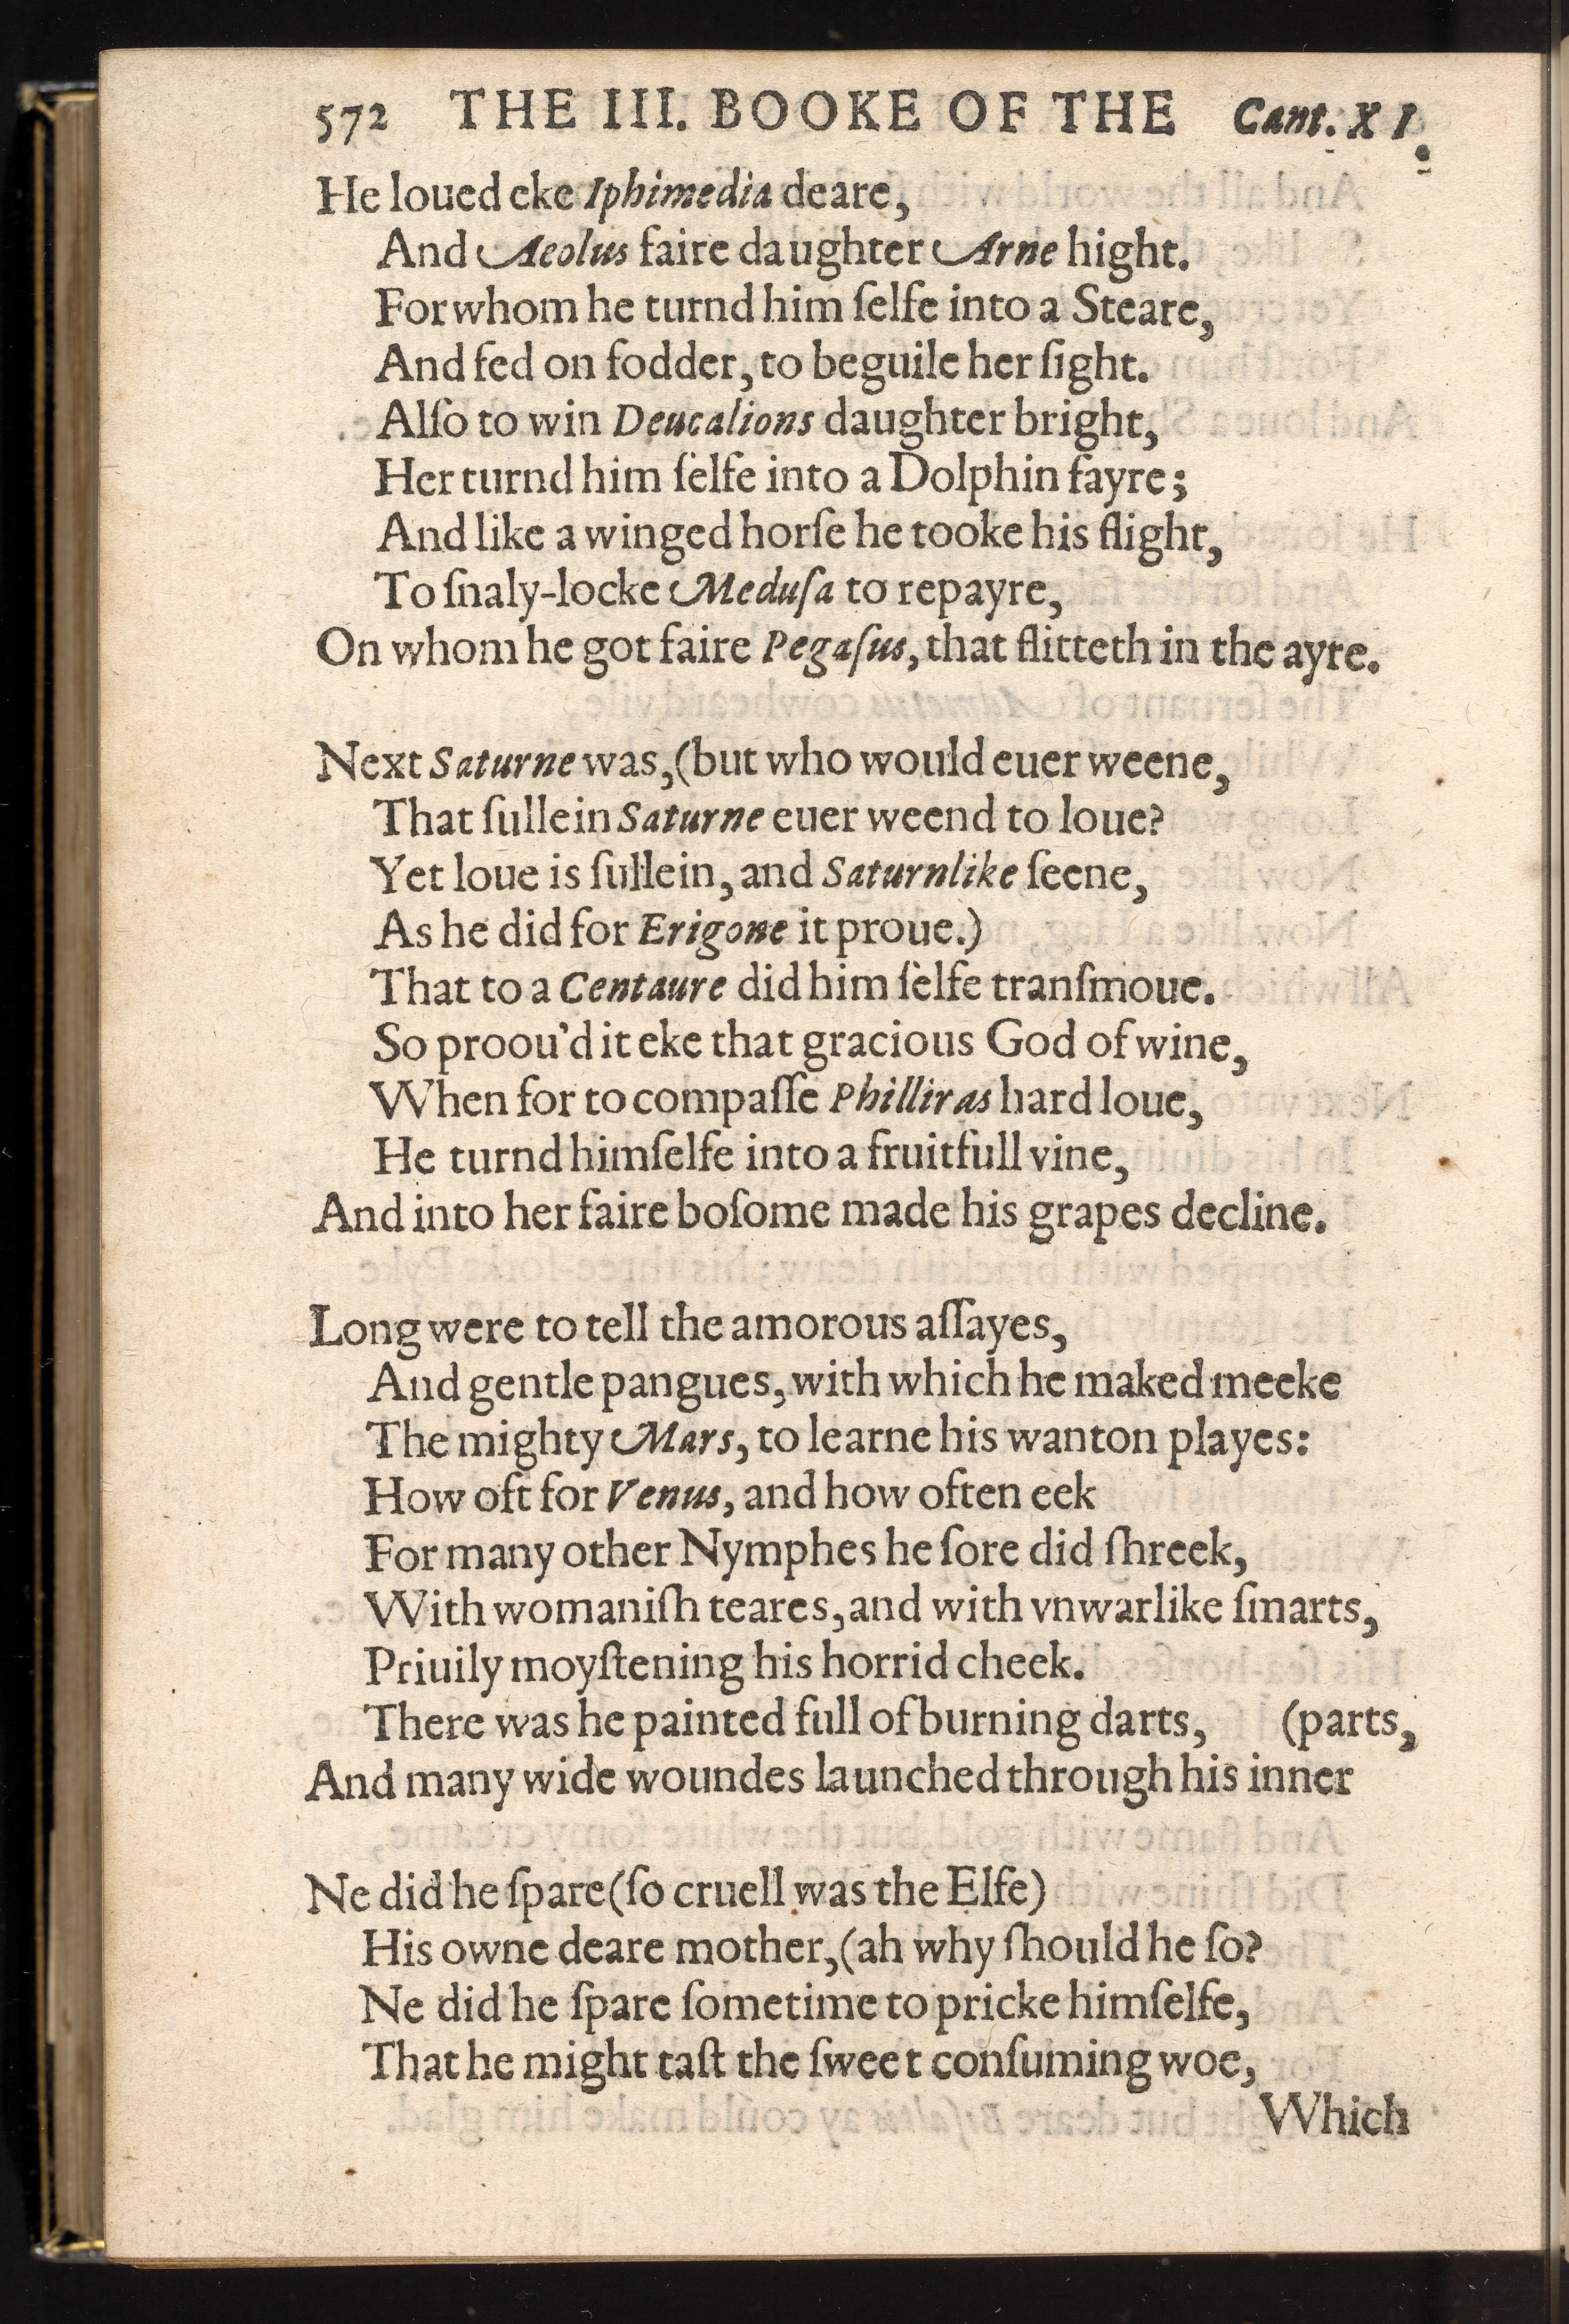 572 THE III. BOOKE OF THE Cant. XI.
He loued eke Iphimedia deare,
And Aeolus faire daughter Arne hight.
For whom he turnd him ſelfe into a Steare,
And fed on fodder, to beguile her ſight.
Alſo to win Deucalions daughter bright,
Her turnd him ſelfe into a Dolphin fayre;
And like a winged horſe he tooke his flight,
To ſnaly-locke Meduſa to repayre,
On whom he got faire Pegaſus, that flitteth in the ayre.
Next Saturne was, (but who would euer weene,
That ſullein Saturne euer weend to loue?
Yet loue is ſullein, and Saturnlike ſeene,
As he did for Erigone it proue.)
That to a Centaure did him ſelfe tranſmoue.
So proou'd it eke that gracious God of wine,
When for to compaſſe Philliras hard loue,
He turnd himſelfe into a fruitfull vine,
And into her faire boſome made his grapes decline.
Long were to tell the amorous aſſayes,
And gentle pangues, with which he maked meeke
The mighty Mars, to learne his wanton playes:
How oft for Venus, and how often eek
For many other Nymphes he ſore did ſhreek,
With womaniſh teares, and with vnwarlike ſmarts,
Priuily moyſtening his horrid cheek.
There was he painted full of burning darts, (parts,
And many wide woundes launched through his inner
Ne did he ſpare (ſo cruell was the Elfe)
His owne deare mother, (ah why ſhould he ſo?
Ne did he ſpare ſometime to pricke himſelfe,
That he might taſt the ſweet conſuming woe,
Which